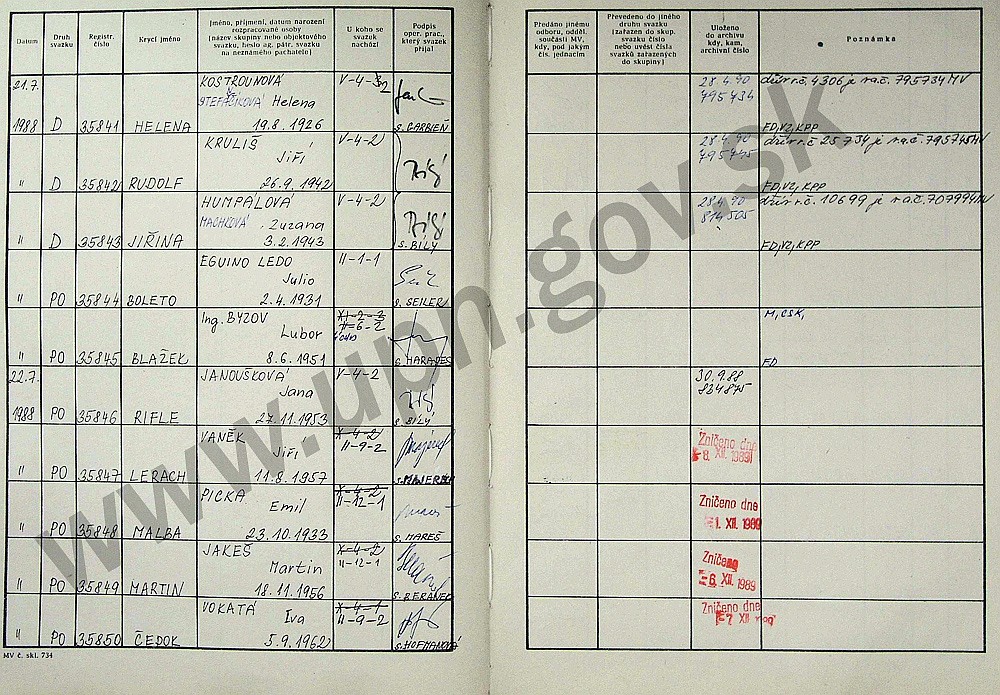 Datum
Druh svazku
Registr. číslo
Krycí jméno
Jméno, příjmení, datum narození rozpracované osoby (název skupiny nebo objektového svazku, heslo ag. pátr. svazku na neznámého pachatele)
U koho se svazek nachází
Podpis oper. prac., který svazek přijal
Předáno jinému odboru, odděl. součásti MV, kdy, pod jakým čís. jednacím
Převedeno do jiného druhu svazku (zařazen do skup. svazku číslo nebo uvést čísla svazků zařazených do skupiny)
Uloženo do archivu kdy, kam, archivní číslo
Poznámka
21.7. KOSTROUNOVÁ V-4-2 28.4.90 dův r.č. 4306 je na č. 795734 MV
ŠTEFAČKOVÁ Helena 795734
1988 D 35841 HELENA 19.8.1926 s. GARBIEŇ FD, VZ, KPP
KRULIŠ V-4-2 28.4.90 dův r.č 25734 je na č. 795745 MV
Jiří 795745
" D 35842 RUDOLF 26.9.1942 FD, VZ, KPP
HUMPÁLOVÁ V-4-2 28.4.90 dův r.č 10699 je na č. 707994 MV
MACHKOVÁ Zuzana 814505
" D 35843 JIŘINA 3.2.1943 s. BÍLÝ FD, VZ, KPP
EGUINO LEDO II-1-1
Julio
" PO 35844 BOLETO 2.4.1931 s. SEILER
Ing. BYZOV XI-2-3 M, CSK,
Lubor II-6-2
" PO 35845 BLAŽEK 8.6.1951 s. HARADES FD
22.7. JANOUŠKOVÁ V-4-2 30.9.88
Jana 824875
1988 PO 35846 RIFLE 27.11.1953 s. BÍLÝ
VANĚK X-4-2 Zničeno dne
Jiří II-9-2 -8. XII. 1989
" PO 35847 LERACH 11.8.1957
PICKA X-4-2 Zničeno dne
Emil II-12-1 -1. XII. 1989
" PO 35848 MALBA 23.10.1933 s. MAREŠ
JAKEŠ X-4-2 Zničeno
Martin II-12-1 -6. XII. 1989
" PO 35849 MARTIN 18.11.1956 s. BERÁNEK
VOKATÁ X-4-1 Zničeno dne
Iva II-9-2 -7. XII
" PO 35850 ČEDOK 5.9.1962 s. HOFMANOVÁ
MV č. skl. 734
www.upn.gov.sk